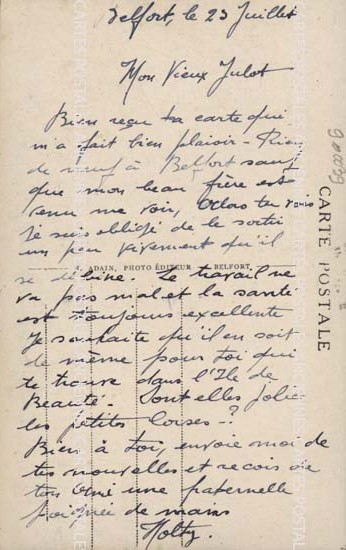 Belfort, le 23 Juillet
Mon Vieux Julot
Bien reçu ta carte qui
m'a fait bien plaisir - Rien
de neuf à Belfort sauf
que mon beau frère est
venu me voir, Alors tu vois
je suis obligé de le sortir
un peu vivement qu'il
ADAIN, PHOTO ÉDITEUR - BELFORT
se débine. Le travail ne
va pas mal et la santé
est toujours excellente
Je souhaite qu'il en soit
de même pour toi qui
te trouve dans l'Ile de
Beauté. Sont elles jolies
les petites Corses - ?
Bien à toi, envoie moi de
tes nouvelles et reçois de
ton ami une fraternelle
poignée de mains
Holtz.
CARTE POSTALE